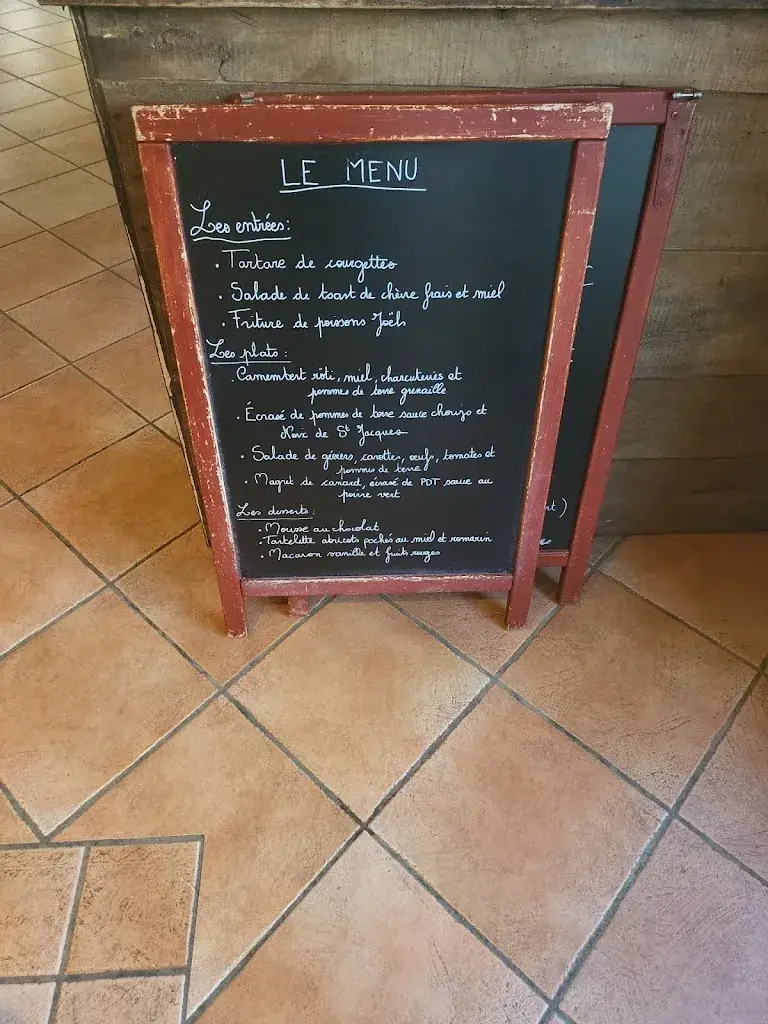 LE MENU
Les entrées:
• Tartare de courgettes
• Salade de toast de chèvre frais et miel
• Friture de poissons Joëls
Les plats:
• Camembert rôti, miel, charcuteries et
pommes de terre grenaille
• Écrasé de pommes de terre sauce chorizo et
Noix de St Jacques
• Salade de gésiers, carottes, oeufs, tomates et
pommes de terre
• Magret de canard, écrasé de PDT sauce au
poivre vert
Les desserts:
• Mousse au chocolat
• Tartelette abricots pochés au miel et romarin
• Macaron vanille et fruits rouges